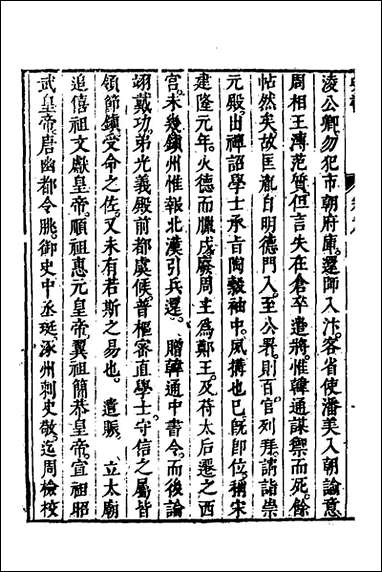 凌公卿勿犯市朝府庫還師入汴客省使潘美入朝諭意
周相王溥范質但言失在倉卒遣將惟韓通謀禦而死餘
帖然矣故匡胤自明德門入至公署則百官列拜請詣崇
元殿出禪詔學士承旨陶穀袖中夙搆也已旣卽位稱宋
建隆元年火德而臘戌廢周主爲鄭王及苻太后遷之西
宮未幾鎮州惟報北漢引兵還 贈韓通中書令而後論
翊戴功弟光義殿前都虞候普樞密直學士守信之屬皆
領節鎮受命之佐又未有若斯之易也 遣賑 立太廟
追僖祖文獻皇帝順祖惠元皇帝翼祖簡恭皇帝宣祖昭
武皇帝唐幽都令朓御史中丞珽涿州刺史敬迄周檢校